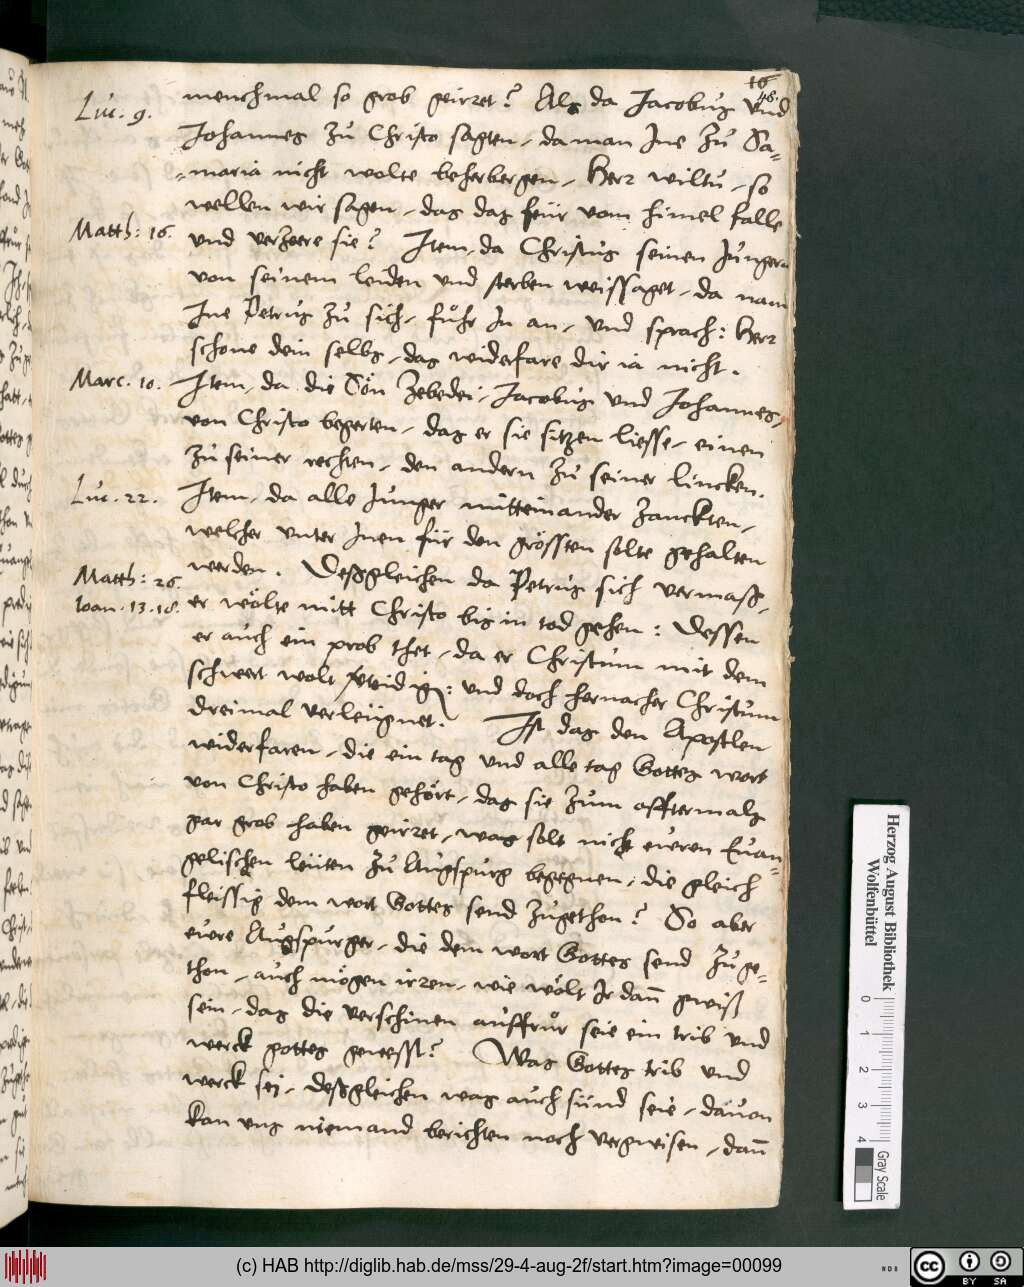 16
48.
Luc. 9.
menchmal so grob geirret? Als da Jacobus vnd
Johannes zu Christo sagten, da man Ine zu Sa=
=maria nicht wolte beherbergen, Herr wiltu, so
wellen wir sagen, das das feür vom himel falle
Matth: 16.
vnd verzeere sie? Item, da Christus seinen Jungern
von seinem leiden vnd sterben weissaget, da nam
Ine Petrus zu sich, fuhr In an, vnd sprach: Herr
schone dein selbs, das widerfare dir ia nicht.
Marc. 10.
Item, da die Sön Zebedei, Jacobus vnd Johannes,
von Christo begerten, das er sie sitzen liesse, einen
zu seiner rechten, den andern zu seiner lincken.
Luc. 22.
Item, da alle Junger mitteinander zanckten,
welcher vnter Inen für den grössten solte gehalten
werden. Deßgleichen da Petrus sich vermaß,
Matth: 26.
Ioan. 13. 18.
er wölte mitt Christo bis in tod gehen: Dessen
er auch ein prob thet, da er Christum mit dem
schwert wolt vertheidigen: vnd doch hernacher Christum
dreimal verleügnet. Ist das den Apostlen
widerfaren, die ein tag vnd alle tag Gottes wort
von Christo haben gehört, das sie zum afftermals
gar grob haben geirret, was solt nicht eueren Euan=
gelischen leüten zu Augspurg begegnen, die gleich
fleissig dem wort Gottes send zugethon? So aber
euere Augspurger, die dem wort Gottes send zuge=
thon, auch mögen irren, wie wölt Ir dann gwiß
sein, das die verschinen auffrür seie ein trib vnd
werck gottes gewesst? Was Gottes trib vnd
werck sej, deßgleichen was auch sünd seie, dauon
kan vns niemand berichten noch vergwisen, dann
Herzog August Bibliothek
Wolfenbüttel
0 1 2 3 4
Gray Scale
(c) HAB http://diglib.hab.de/mss/29-4-aug-2f/start.htm?image=00099
WDB
cc BY SA